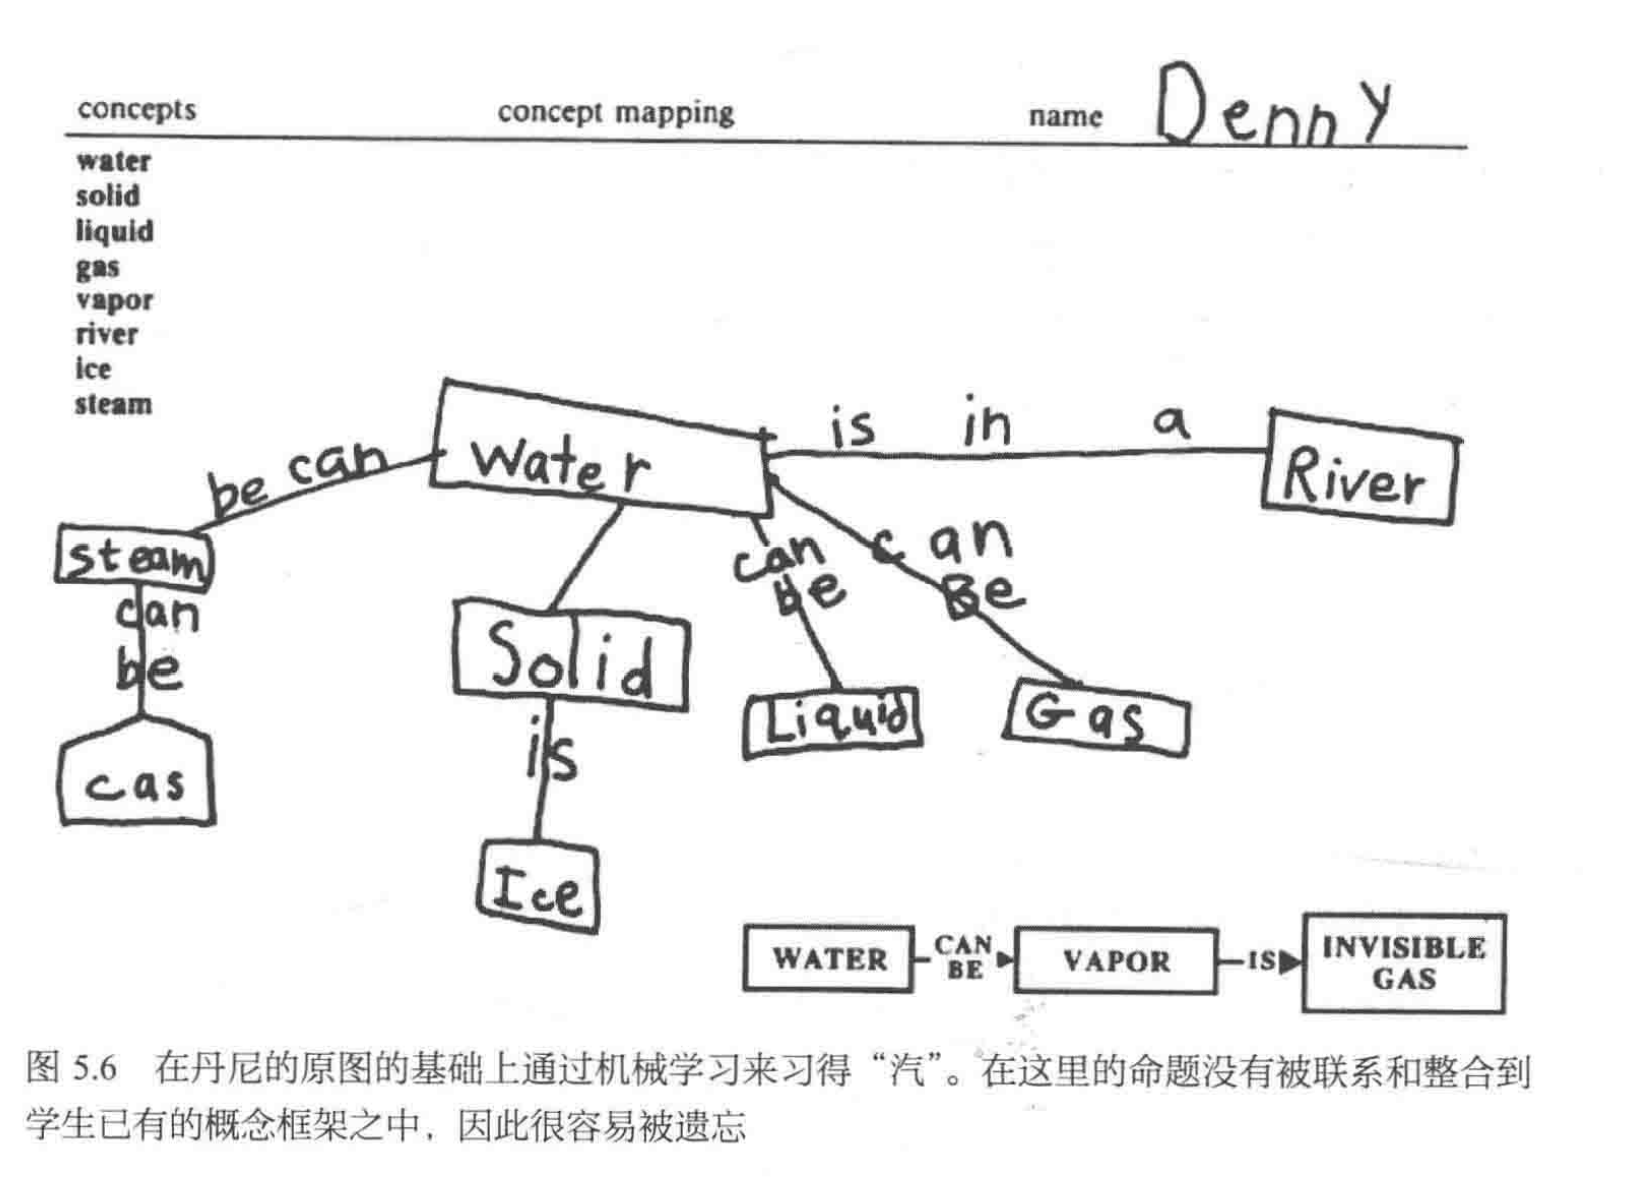 concepts concept mapping name Denny
water
solid
liquid
gas
vapor
river
ice
steam
Water
is in a
River
be can
steam
can
be
cas
Solid
is
Ice
can
be
Liquid
can
Be
Gas
WATER
CAN
BE
VAPOR
IS
INVISIBLE
GAS
图 5.6 在丹尼的原图的基础上通过机械学习来习得“汽”。在这里的命题没有被联系和整合到
学生已有的概念框架之中，因此很容易被遗忘